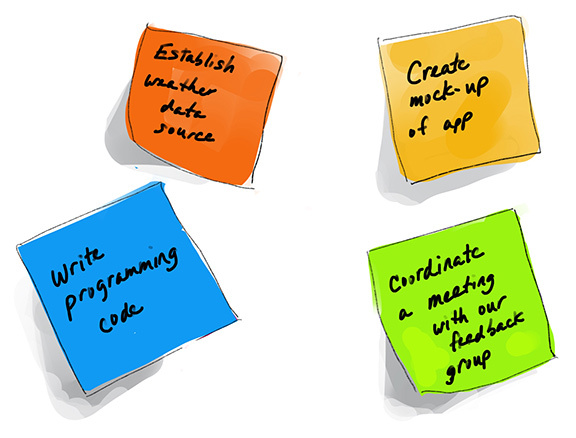 Establish
weather
data
source
Create
mock-up
of app
Write
programming
code
Coordinate
a meeting
with our
feedback
group